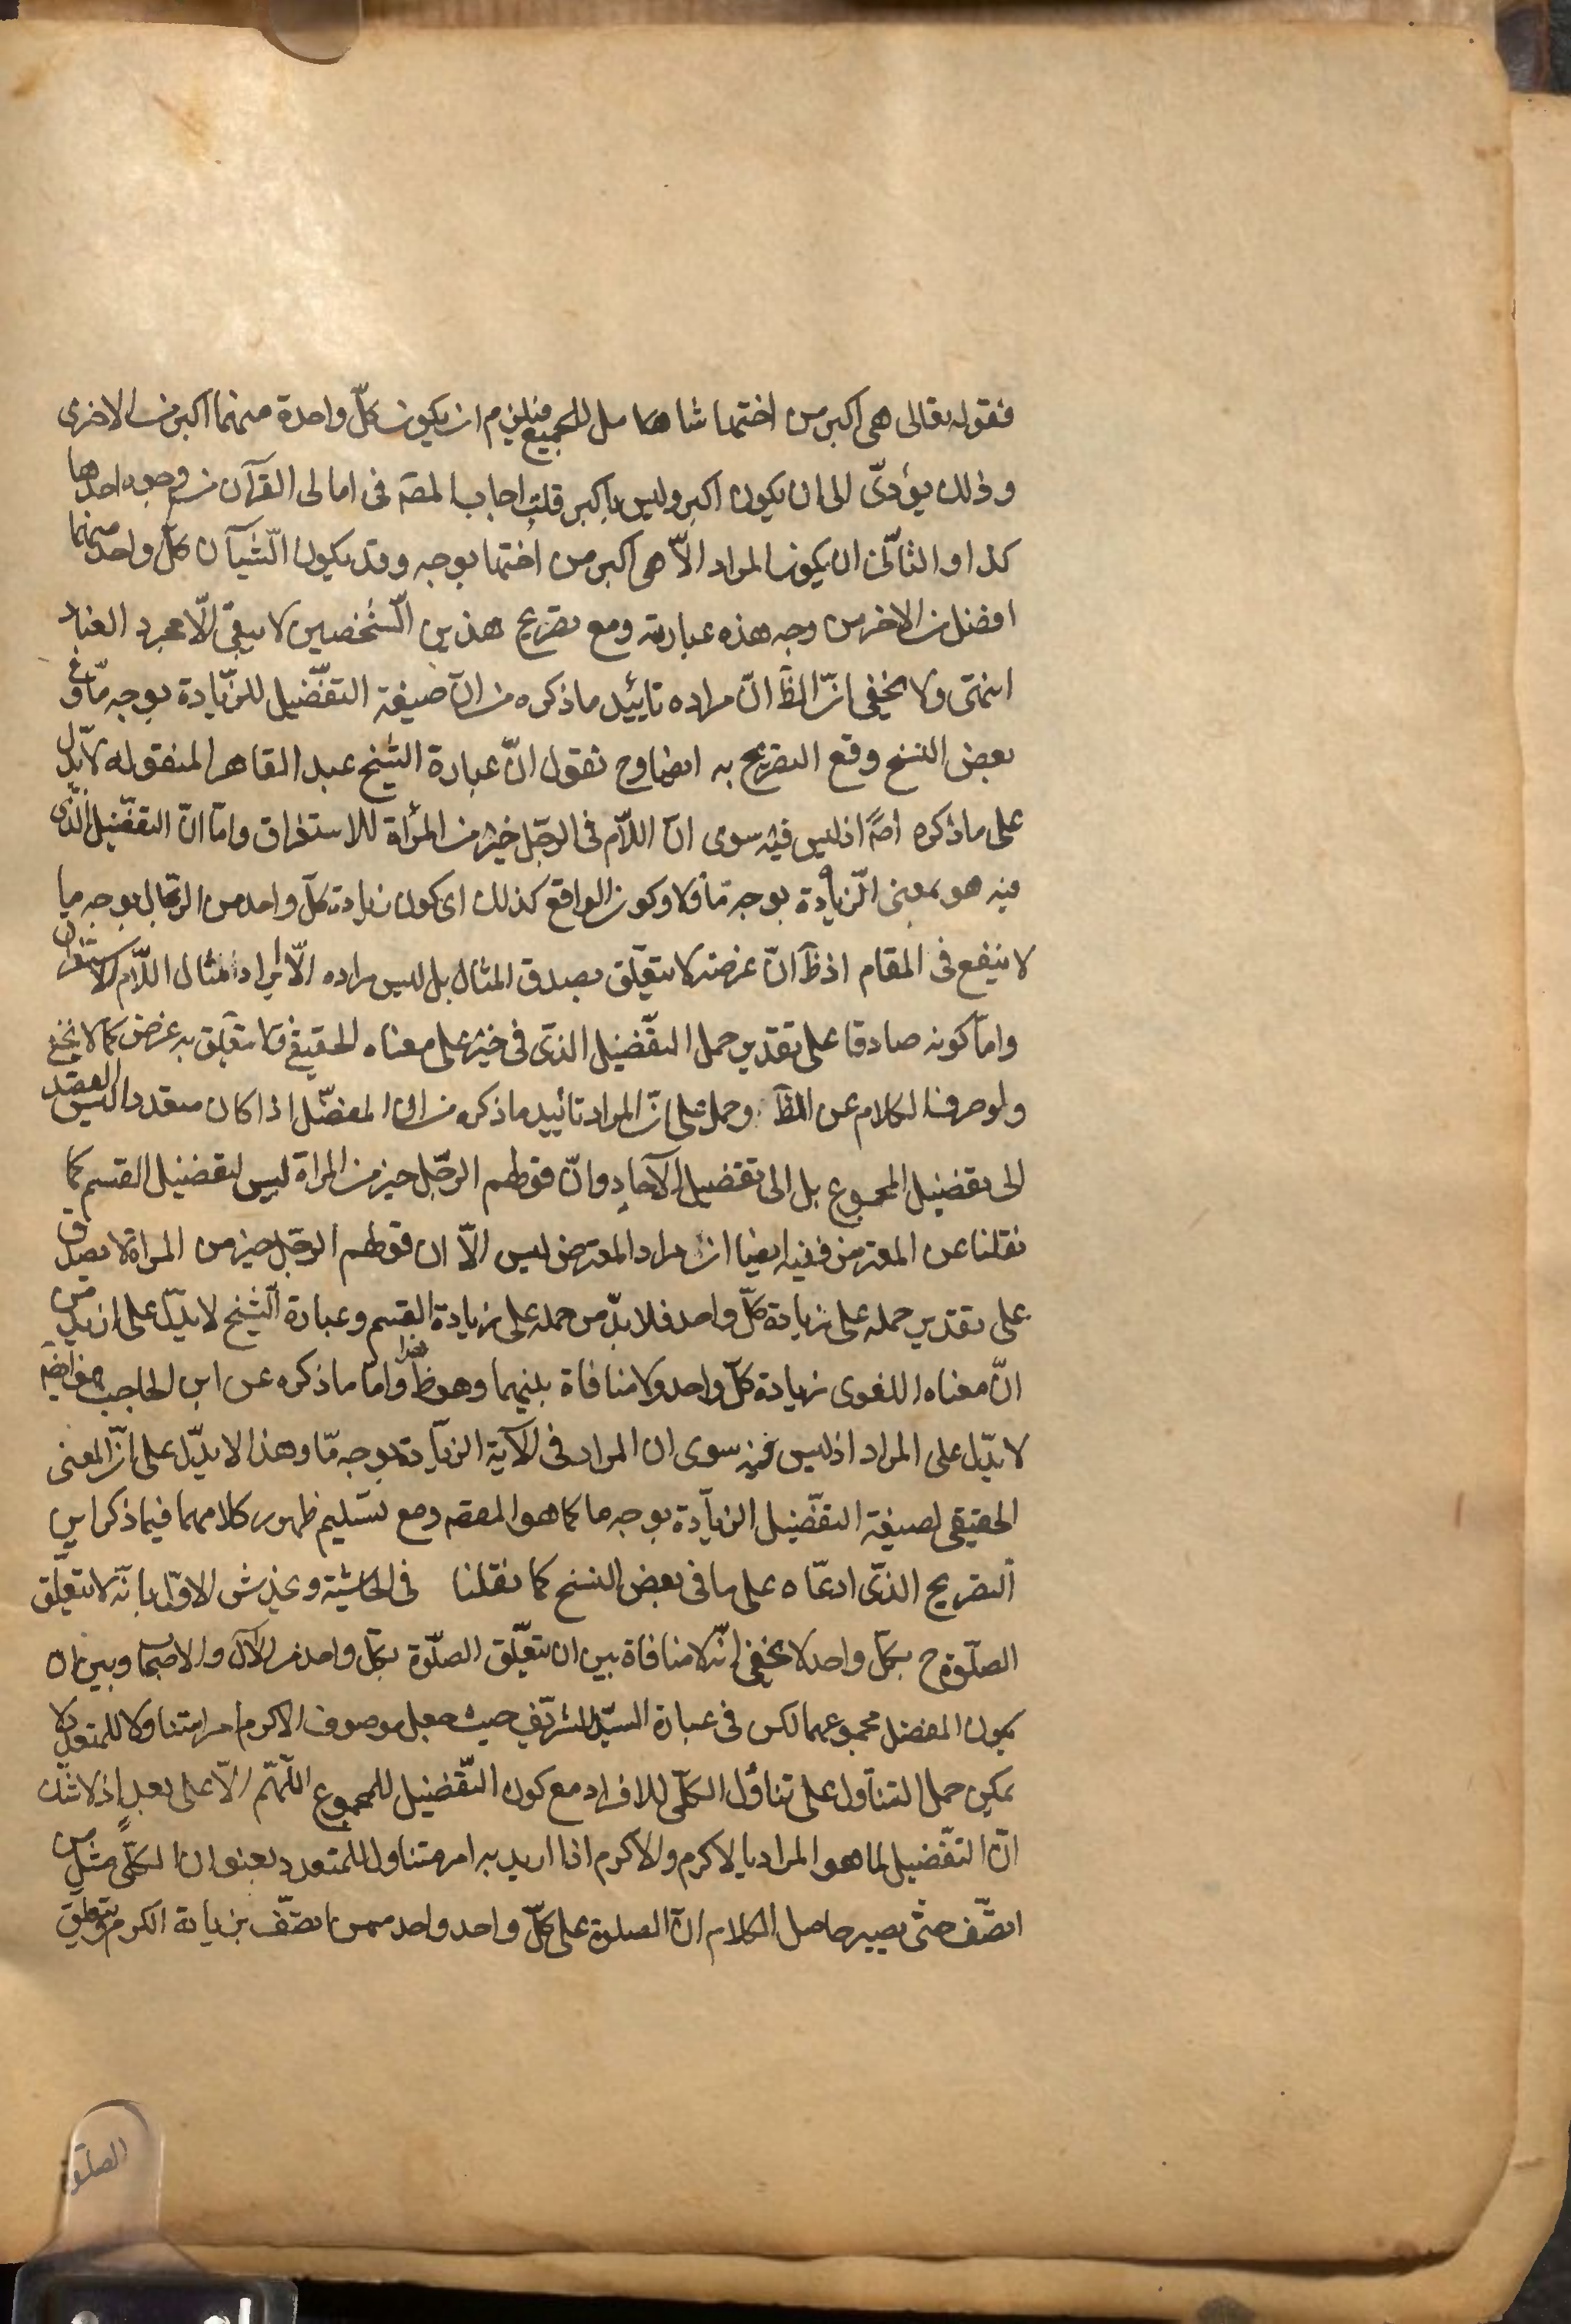 فقوله تعالى هى اكبر من اختها شاهدا مل للجميع فيلزم ان يكون كلّ واحدة منهما اكبر من الاخرى
وذلك يؤدّى الى ان يكون اكبر وليس باكبر قلت اجاب المصّ فى امالى القرآن من وجوه احدها
كذا والثانى ان يكون المراد الّا هى اكبر من اختها بوجه وقد يكون الشّيآن كلّ واحد منهما
افضل من الاخر من وجه هذه عبارته ومع تصريح هذين الشّخصين لا يبقى الّا مجرد العناد
انتهى ولا يخفى انّ الظّ انّ مراده تاييد ما ذكره من انّ صيغة التفضّيل للزّيادة بوجه مّا وفى
بعض النسخ وقع التصريح به ايضا وح نقول انّ عبارة الشّيخ عبد القاهر المنقوله لا يدّل
على ما ذكره اصّلا اذ ليس فيه سوى انّ اللّام فى الرجّل خير من المرأة للاستغراق وامّا انّ التفضّيل الّذى
فيه هو بمعنى الّزيادة بوجه مّا فلا وكون الواقع كذلك اى كون زيادة كلّ واحد من الرّجال بوجه ما
لا ينفع فى المقام اذ ظّ انّ غرضه لا يتعلّق بصدق المثال بل ليس مراده الّا ايراد امثال اللّام الاستغراق
وامّا كونه صادقا على تقدير حمل التفضّيل الذى فى خير على معناه الحقيقى فلا يتعلّق به غرض كما لا يخفى
ولو صرفنا الكلام عن الظّ وحمل على انّ المراد تائييد ما ذكره من انّ المفضّل اذا كان متعددا ليس القصد
الى تفضيل المجموع بل الى تفضيل الآحاد وانّ قولهم الرجّل خير من المراة ليس لتفضيل القسم كما
نقلنا عن المعترض ففيه ايضا انّ مراد المعترض ليس الّا ان قولهم الرجّل خير من المراة لا يصدق
على تقدير حمله على زيادة كلّ واحد فلا بدّ من حمله على زيادة القسم وعبارة الشّيخ لا يدّل على ازيد من
انّ معناه اللغوى زيادة كلّ واحد ولا منافاة بينهما وهو ظّ جدا وامّا ما ذكره عن ابن الحاجب فهو ايضّ
لا يدّل على المراد اذ ليس فيه سوى ان المراد فى الآية الزيّادة بوجه مّا وهذا لا يدّل على انّ المعنى
الحقيقى لصيغة التفضّيل الزيّادة بوجه ما كما هو المقصّ ومع تسّليم ظهور كلامهما فيما ذكر اين
التصريح الذّى ادعّاه على ما فى بعض النسخ كما نقلنا فى الحاشّية ويخدش الاوّل بانّه لا يتعلّق
الصلّوة ح بكلّ واحد لا يخفى انّه لا منافاة بين ان يتعلّق الصلّوة بكلّ واحد من الآل والاصحاب وبين ان
يكون المفضل مجموعهما لكن فى عبارة السيّد الشرّيف حيث جعل موصوف الاكرم امرا متناولا للمتعدّد لا
يمكن حمل التنّاول على تناوّل الكلّى للافراد مع كون التفّضيل للمجموع اللّهمّ الّا على بعدٍ اذ لا شّك
انّ التفّضيل لما هو المراد بالاكرم والاكرم اذا اريد به امر متناول للمتعدد بعنوان الكلّى مثل من
اتصّف حتّى يصير حاصل الكلام انّ الصلوة على كلّ واحد واحد ممن اتصّف بزيادة الكرم ويتعلّق
الصلّوة